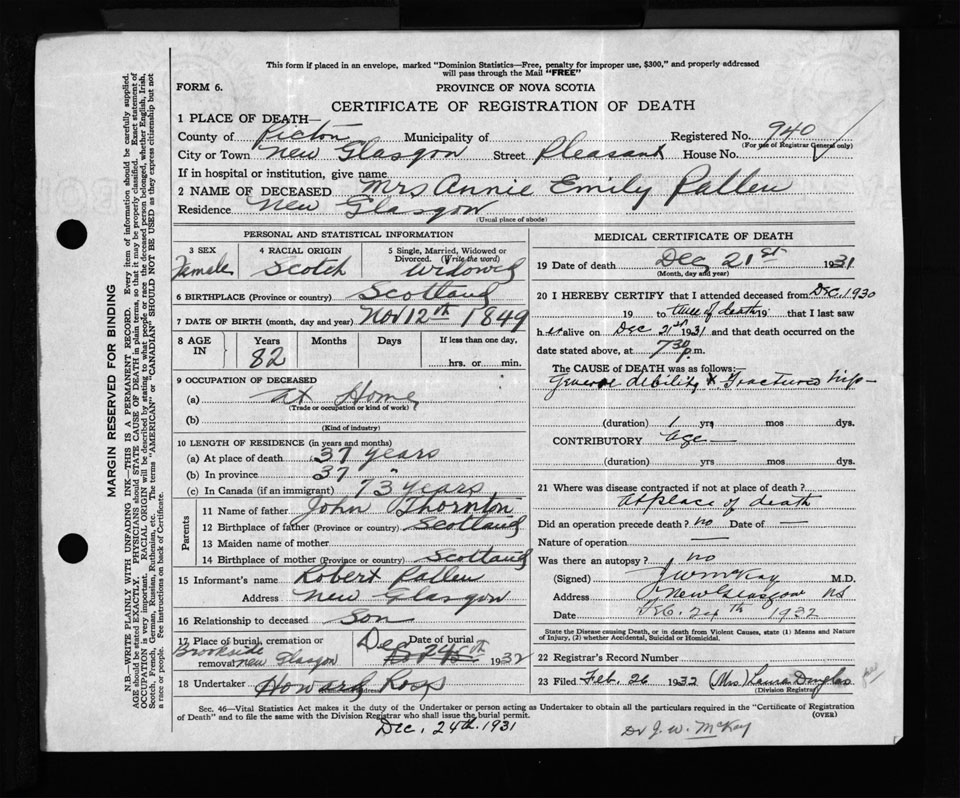 This form if placed in an envelope, marked "Dominion Statistics—Free, penalty for improper use, $300," and properly addressed
will pass through the Mail "FREE"
FORM 6.
PROVINCE OF NOVA SCOTIA
CERTIFICATE OF REGISTRATION OF DEATH
1 PLACE OF DEATH—
County of Pictou Municipality of Registered No. 940
(For use of Registrar General only)
City or Town New Glasgow Street Pleasant House No.
If in hospital or institution, give name
2 NAME OF DECEASED Mrs Annie Emily Pallen
Residence New Glasgow
(Usual place of abode)
PERSONAL AND STATISTICAL INFORMATION
3 SEX Female
4 RACIAL ORIGIN Scotch
5 Single, Married, Widowed or
Divorced. (Write the word)
Widowed
6 BIRTHPLACE (Province or country) Scotland
7 DATE OF BIRTH (month, day and year) Nov 12th 1849
8 AGE IN Years 82 Months Days If less than one day,
hrs. or min.
9 OCCUPATION OF DECEASED
(a) At Home
(Trade or occupation or kind of work)
(b)
(Kind of industry)
10 LENGTH OF RESIDENCE (in years and months)
(a) At place of death 37 years
(b) In province 37 "
(c) In Canada (if an immigrant) 73 years
Parents
11 Name of father John Thornton
12 Birthplace of father (Province or country) Scotland
13 Maiden name of mother
14 Birthplace of mother (Province or country) Scotland
15 Informant's name Robert Pallen
Address New Glasgow
16 Relationship to deceased Son
17 Place of burial, cremation or
removal Brookside New Glasgow
Date of burial
Dec 24th 1932
18 Undertaker Howard Ross
Address
MEDICAL CERTIFICATE OF DEATH
19 Date of death Dec 21st 1931
(Month, day and year)
20 I HEREBY CERTIFY that I attended deceased from Dec. 1930
19 to time of death 19 that I last saw
h er alive on Dec 21st 1931 and that death occurred on
the date stated above, at 7 30 p.m.
The CAUSE OF DEATH was as follows:
General debility & Fractured hip—
(duration) 1 yrs mos dys.
CONTRIBUTORY age—
(duration) yrs mos dys.
21 Where was disease contracted if not at place of death?
At place of death
Did an operation precede death? no Date of —
Nature of operation —
Was there an autopsy? no
(Signed) J W McKay M.D.
Address New Glasgow NS
Date 1932
State the Disease causing Death, or in death from Violent Causes, state (1) Means and Nature
of Injury, (2) whether Accidental, Suicidal or Homicidal.
22 Registrar's Record Number
23 Filed Feb. 26 1932 (Mrs) Laura Douglas
(Division Registrar)
Sec. 46—Vital Statistics Act makes it the duty of the Undertaker or person acting as Undertaker to obtain all the particulars required in the "Certificate of Registration
of Death" and to file the same with the Division Registrar who shall issue the burial permit.
(OVER)
Dec. 24th. 1931
Dr J. W. McKay
MARGIN RESERVED FOR BINDING
N.B.—WRITE PLAINLY WITH UNFADING INK—THIS IS A PERMANENT RECORD. Every item of information should be carefully supplied.
AGE should be stated EXACTLY. PHYSICIANS should STATE CAUSE OF DEATH in plain terms, so that it may be properly classified. Exact statement of
OCCUPATION is very important. RACIAL ORIGIN will be described by stating to what people or race the deceased person belonged, whether English, Irish,
Scotch, French, German, Russian, Ruthenian, etc. The terms "AMERICAN" or "CANADIAN" SHOULD NOT BE USED as they express citizenship but not
a race or people. Fee instructions on back of Certificate.